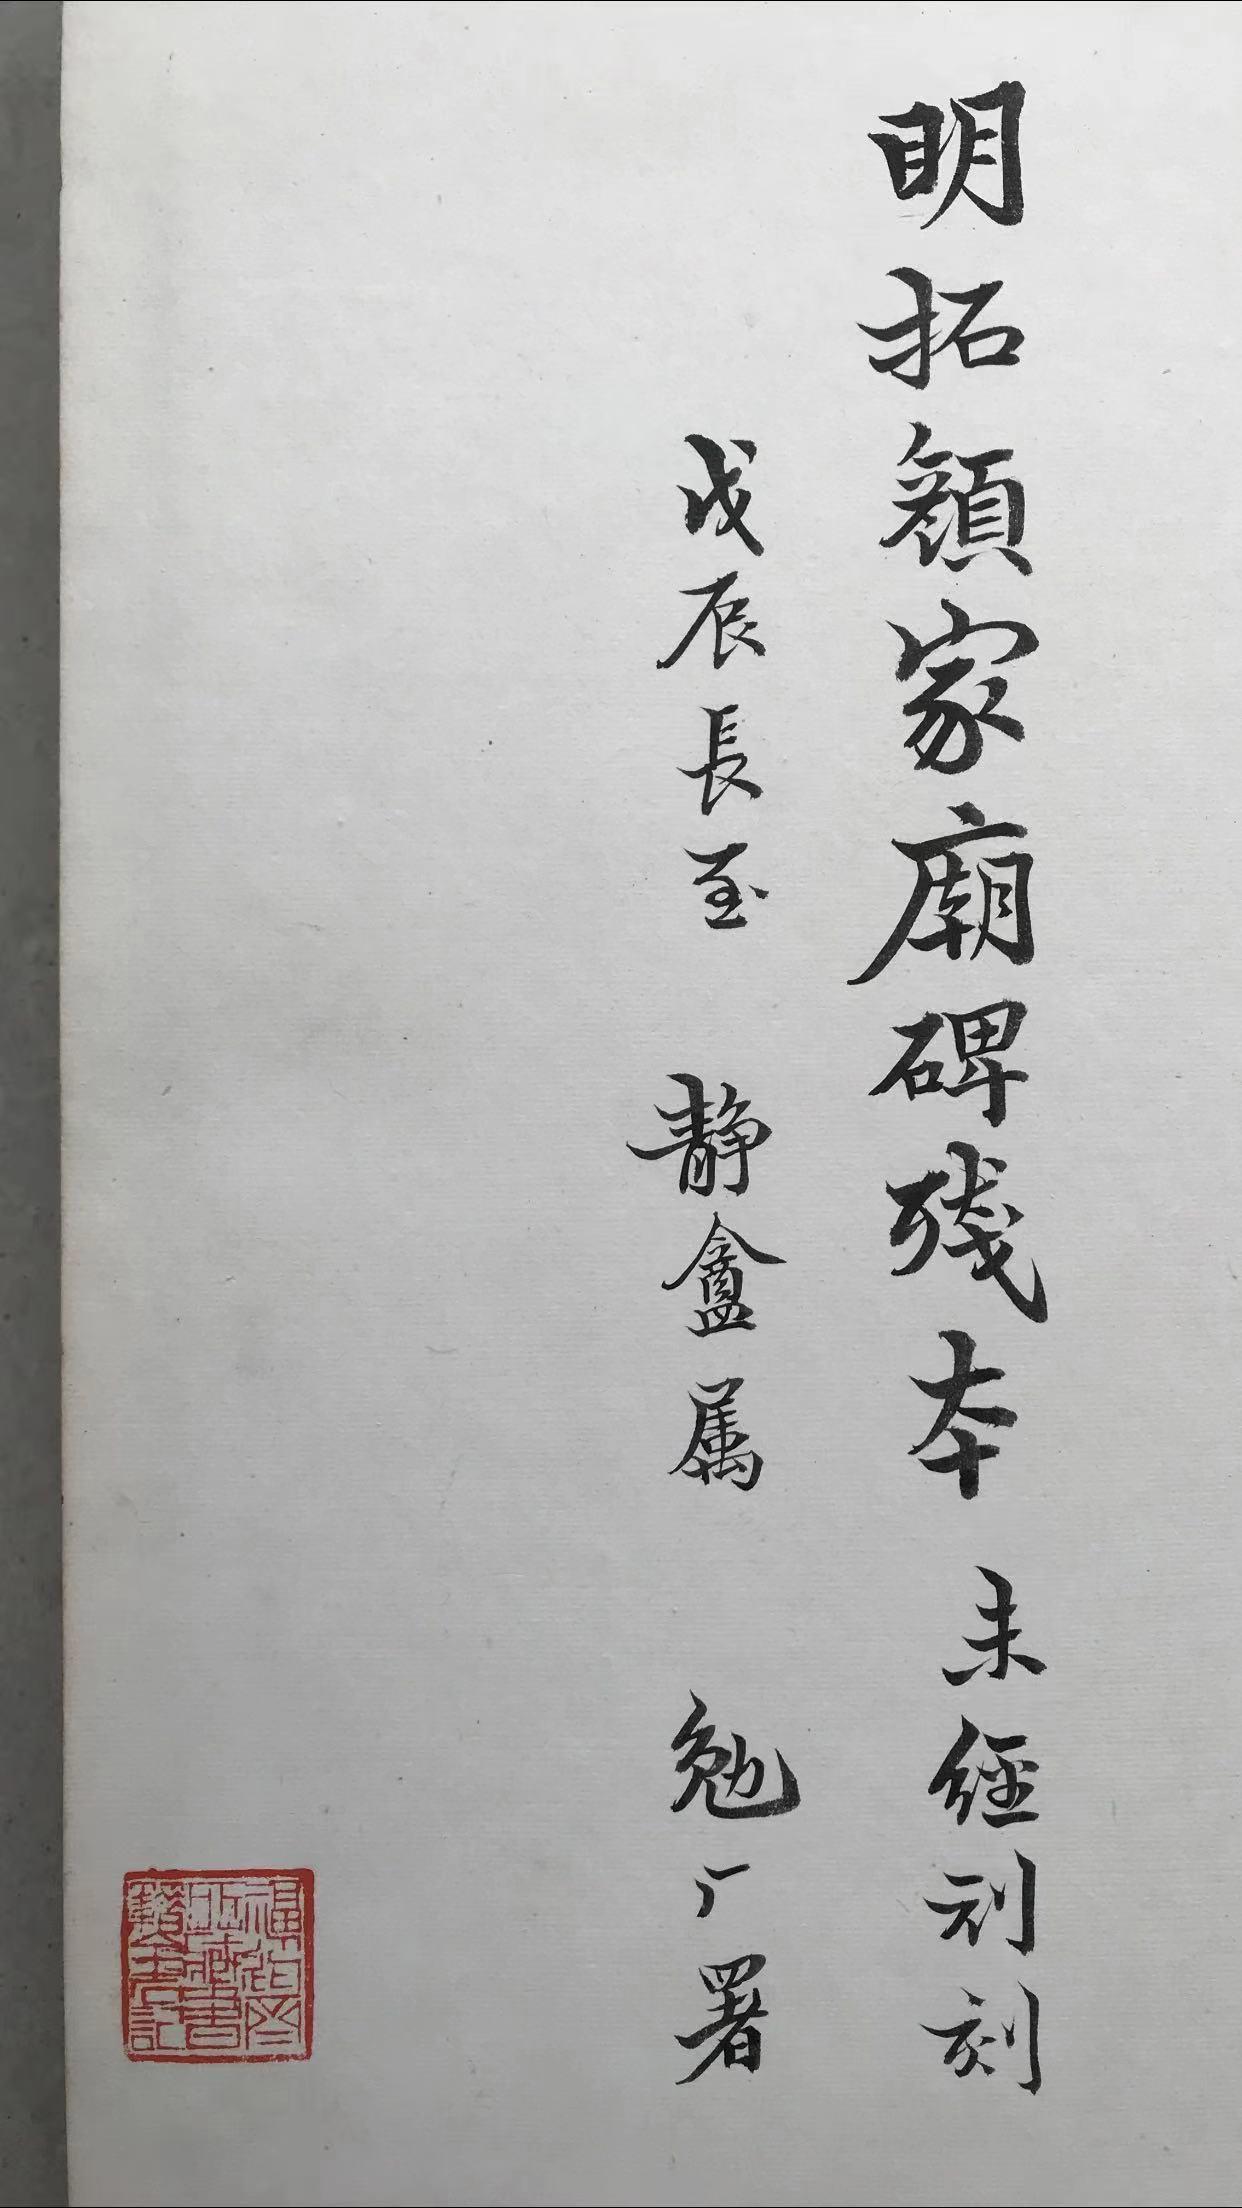 明拓顏家廟碑残本 未經刓刻
戊辰長至 静盦属 勉厂署